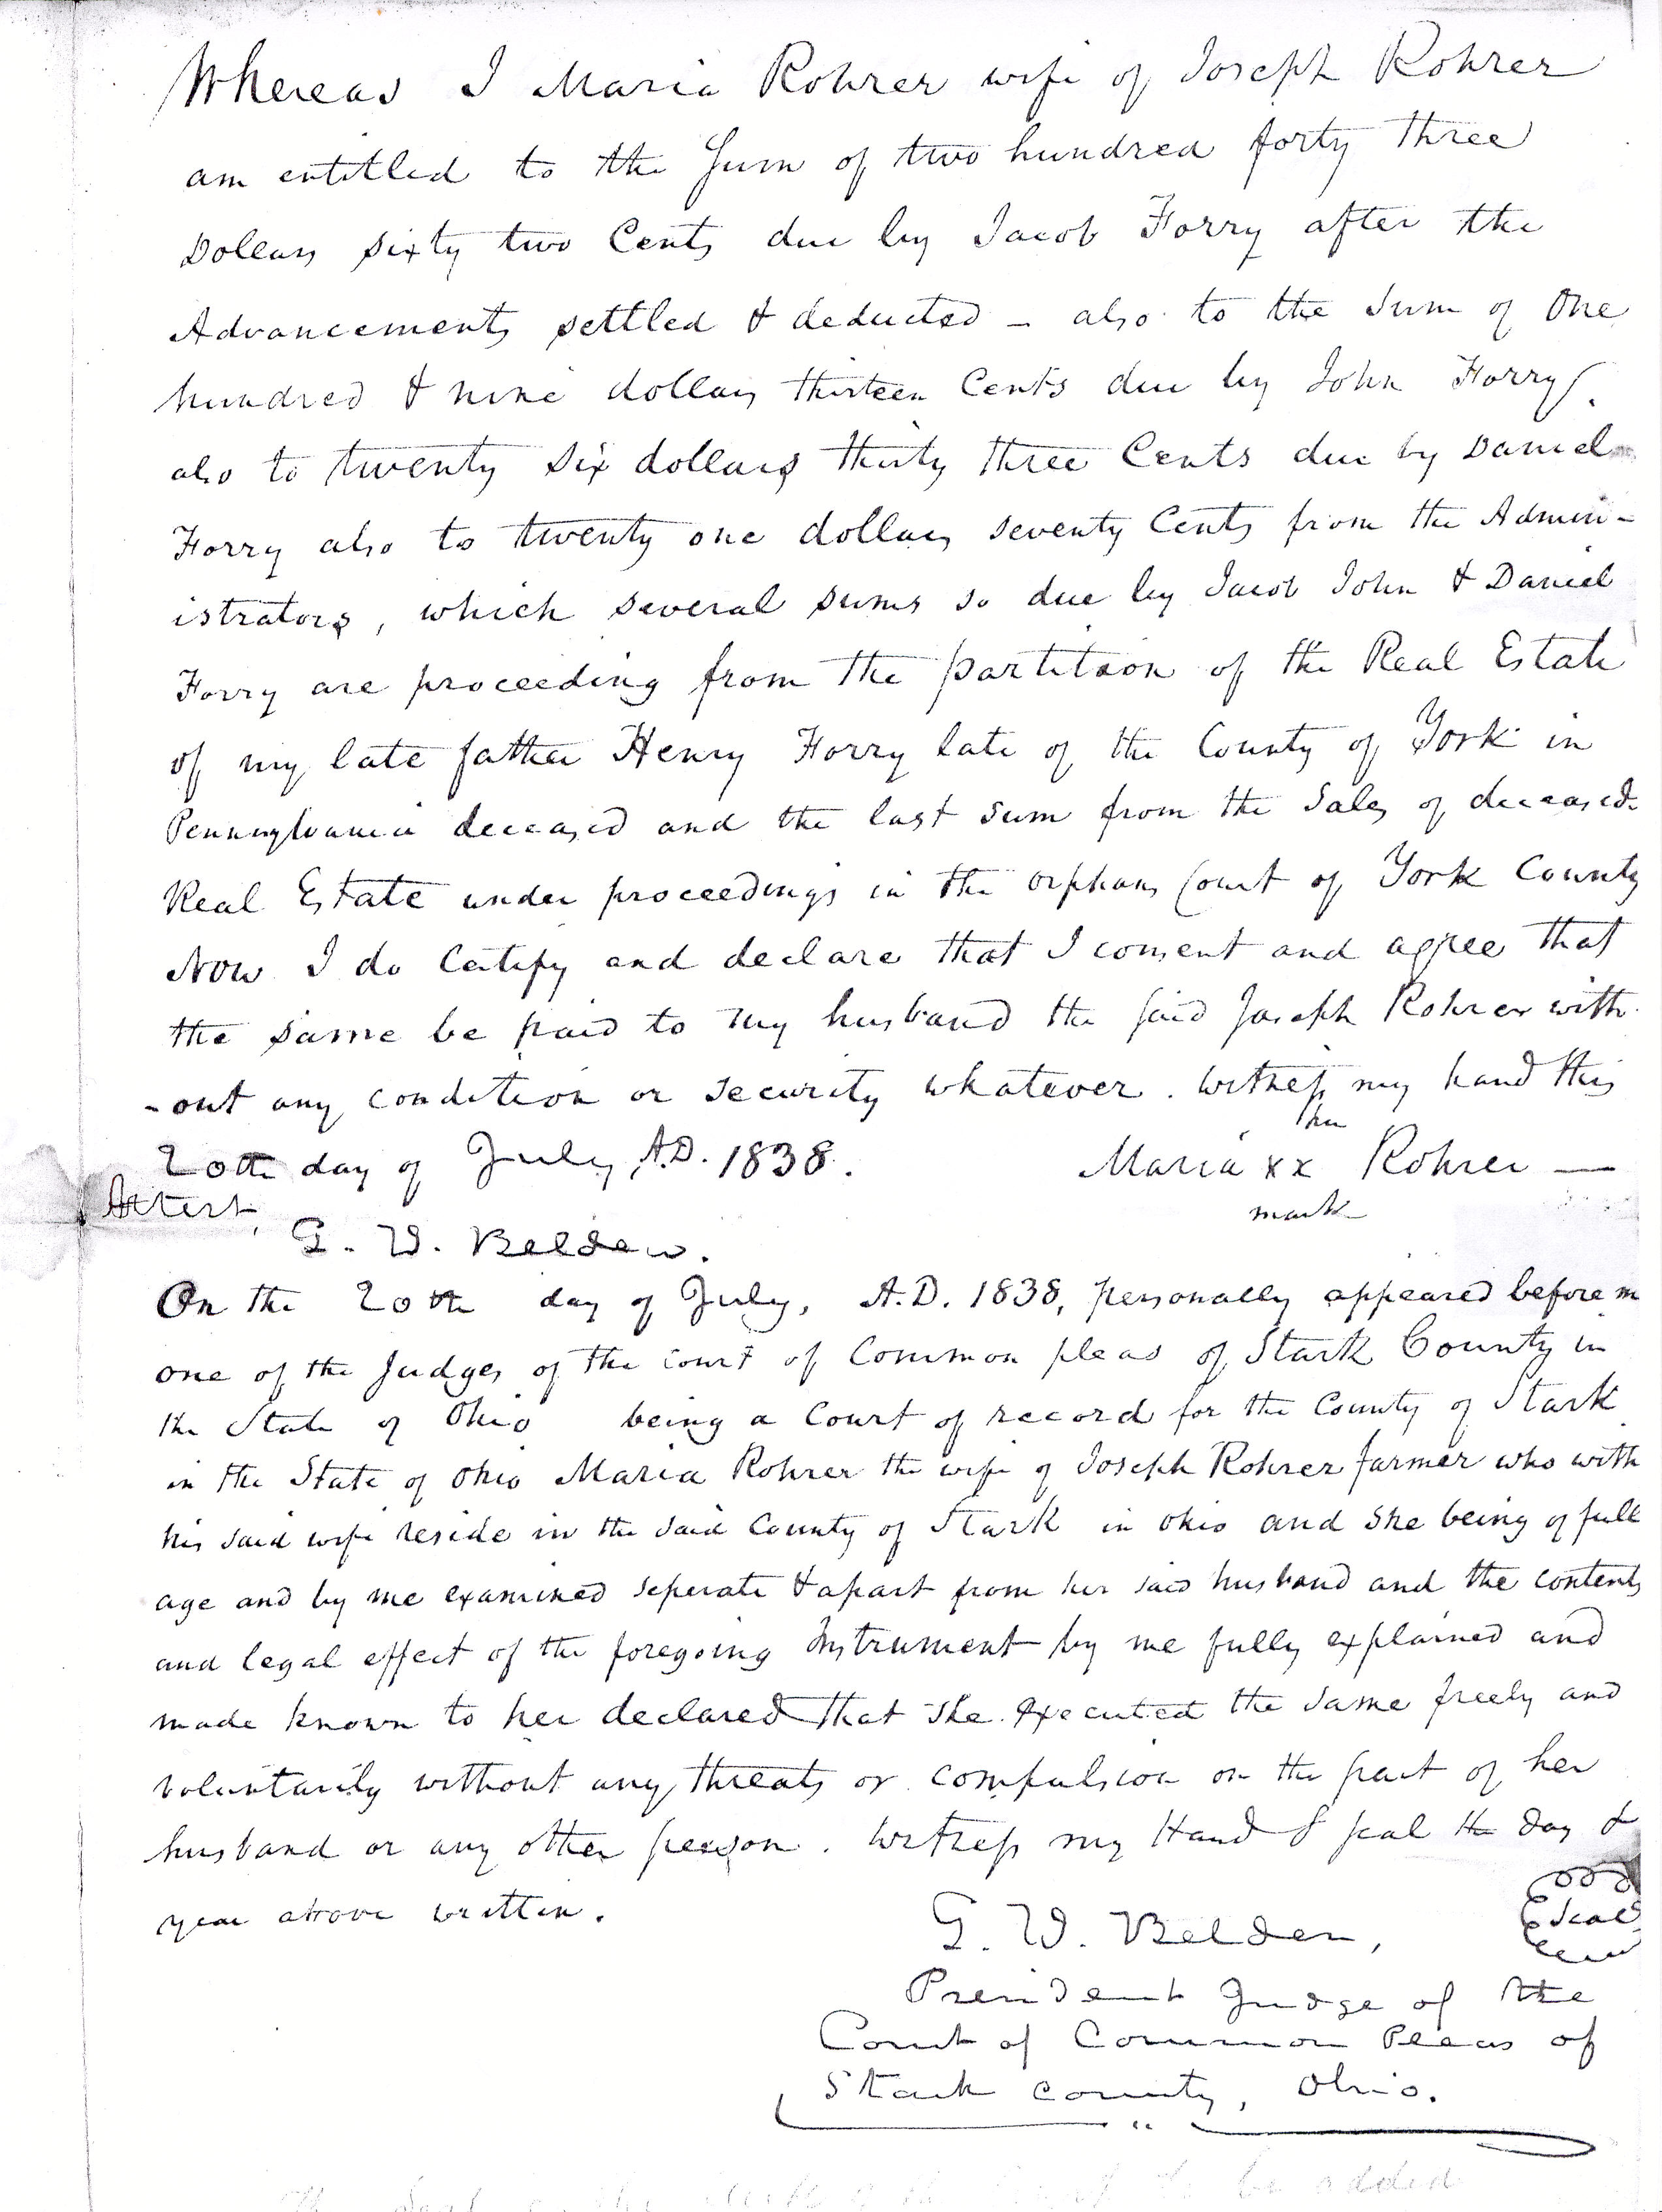 Whereas I Maria Rohrer wife of Joseph Rohrer
am entitled to the Sum of two hundred forty three
Dollars sixty two Cents due by Jacob Forry after the
Advancements settled & deducted – also to the Sum of One
hundred & nine dollars thirteen Cents due by John Forry.
also to twenty six dollars thirty three Cents due by Daniel
Forry also to twenty one dollars seventy Cents from the Admin-
istrators, which several sums so due by Jacob John & Daniel
Forry are proceeding from the partition of the Real Estate
of my late father Henry Forry late of the County of York in
Pennsylvania deceased and the last sum from the Sales of deceased
Real Estate under proceedings in the orphans Court of York County
Now I do Certify and declare that I consent and agree that
the same be paid to my husband the said Joseph Rohrer with
-out any condition or security whatever. Witness my hand this
20th day of July A.D. 1838.
her
Maria xx Rohrer —
mark
Attest,
G. W. Belden.
On the 20th day of July, A.D. 1838, personally appeared before m
one of the Judges of the Court of Common pleas of Stark County in
the State of Ohio being a Court of record for the County of Stark
in the State of Ohio Maria Rohrer the wife of Joseph Rohrer farmer who with
his said wife reside in the said County of Stark in Ohio and she being of full
age and by me examined seperate & apart from her said husband and the contents
and legal effect of the foregoing Instrument by me fully explained and
made known to her declared that she executed the same freely and
voluntarily without any threats or compulsion on the part of her
husband or any other person. Witness my Hand & seal the day &
year above written.
G. W. Belden, Seal
President Judge of the
Court of Common Pleas of
Stark County, Ohio.
be added